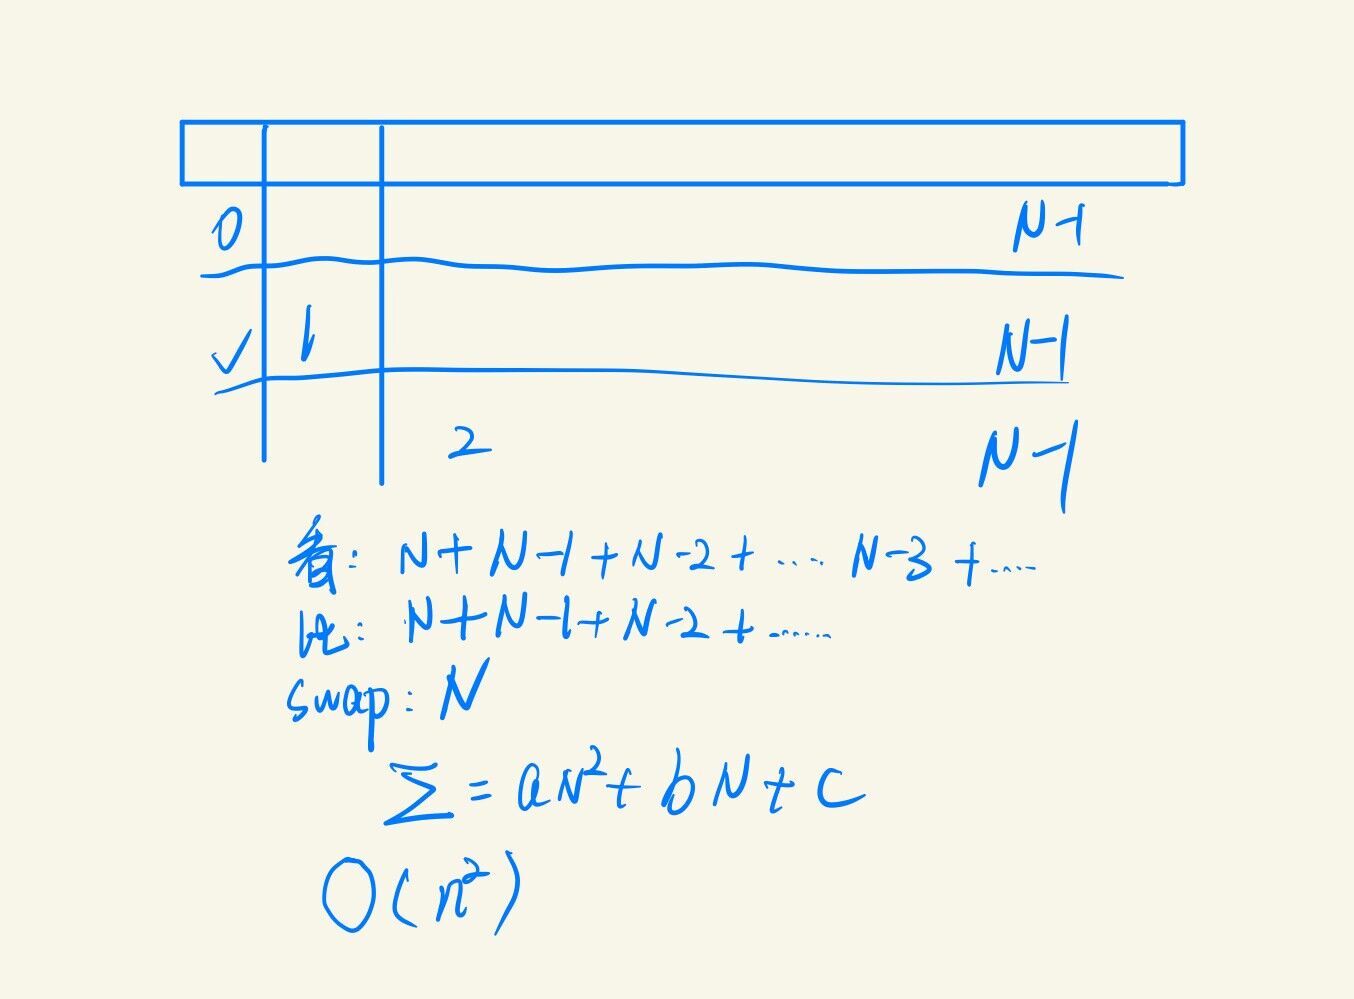 0 N-1
✓ 1 N-1
2 N-1
看: N+N-1+N-2+.... N-3+....
比: N+N-1+N-2+......
swap: N
Σ = aN²+bN+c
O(n²)